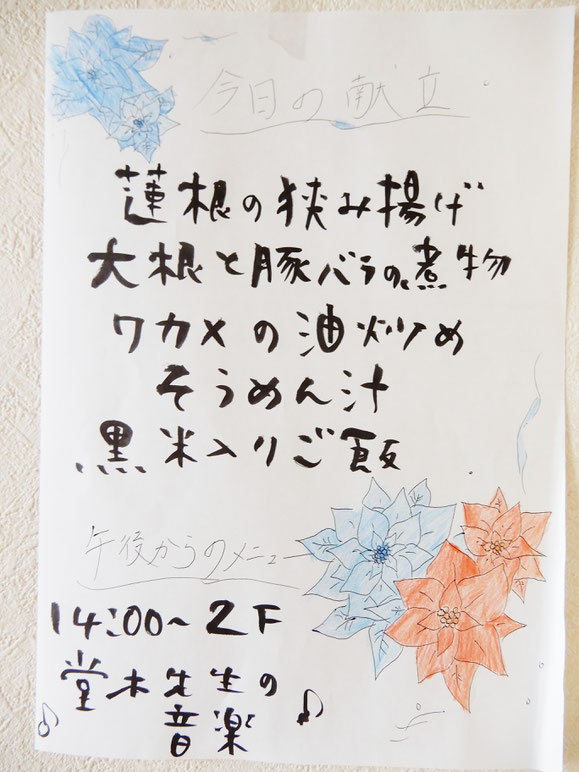 今日の献立
蓮根の狭み揚げ
大根と豚バラの煮物
ワカメの油炒め
そうめん汁
黒米入りご飯
午後からのメニュー
14:00〜2F
堂木先生の
音楽